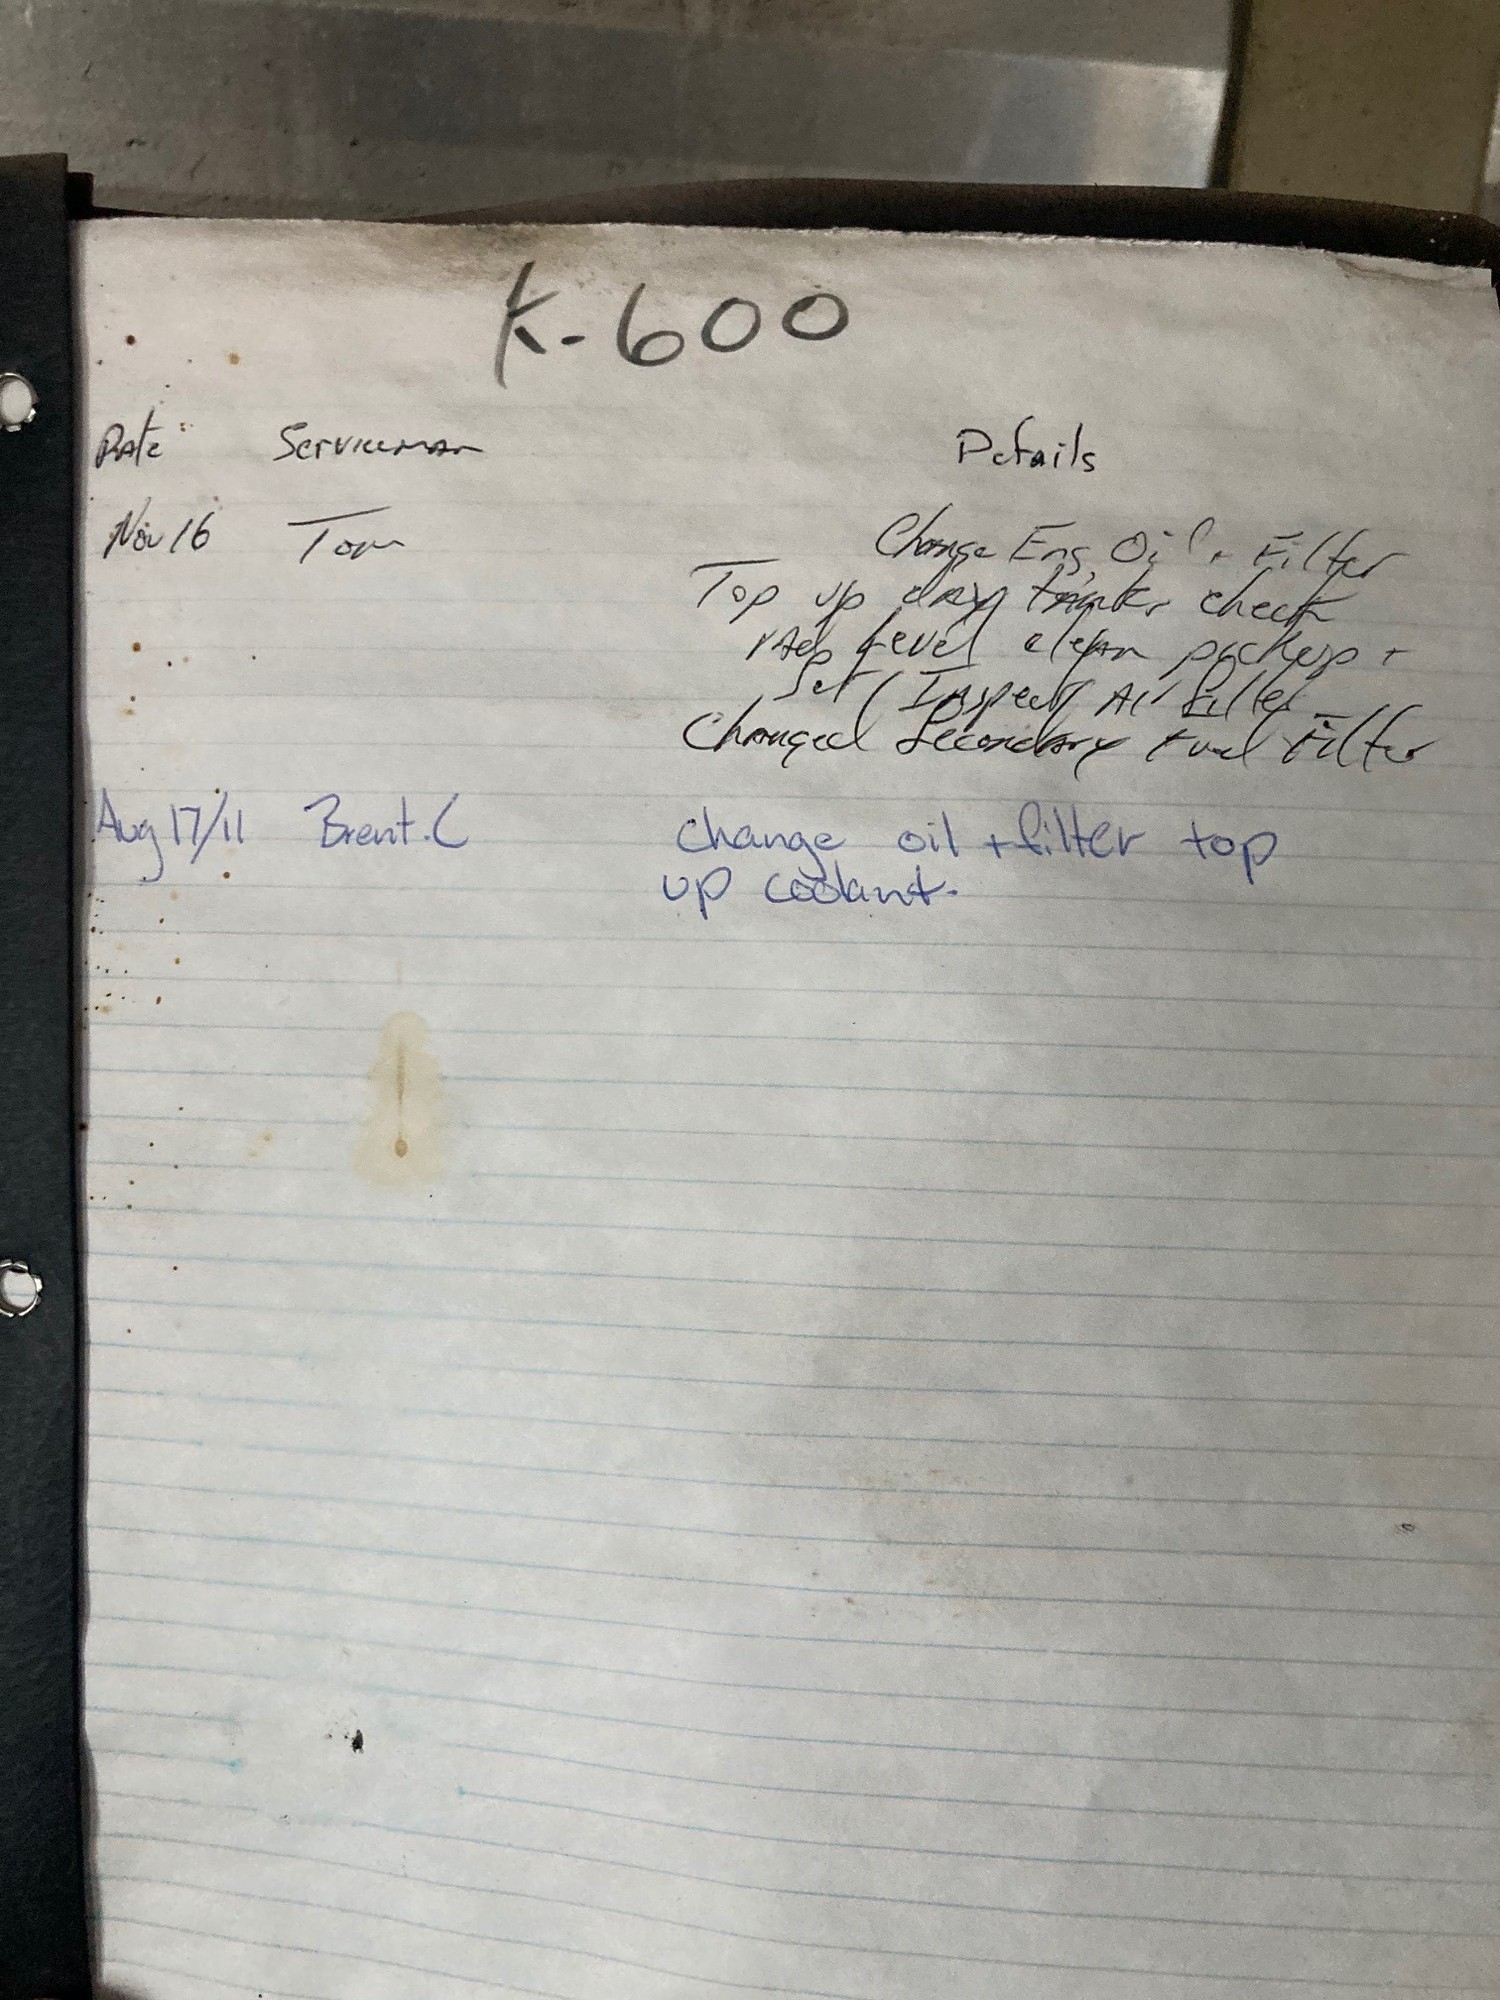 K-600
Date Serviceman Details
Nov 16 Tom Change Eng. Oil + Filter
Top up day tank, check
level clean pickup +
Set Inspect Air filter
Changed Secondary Fuel Filter
Aug 17/11 Brent.C change oil + filter top
up coolant.